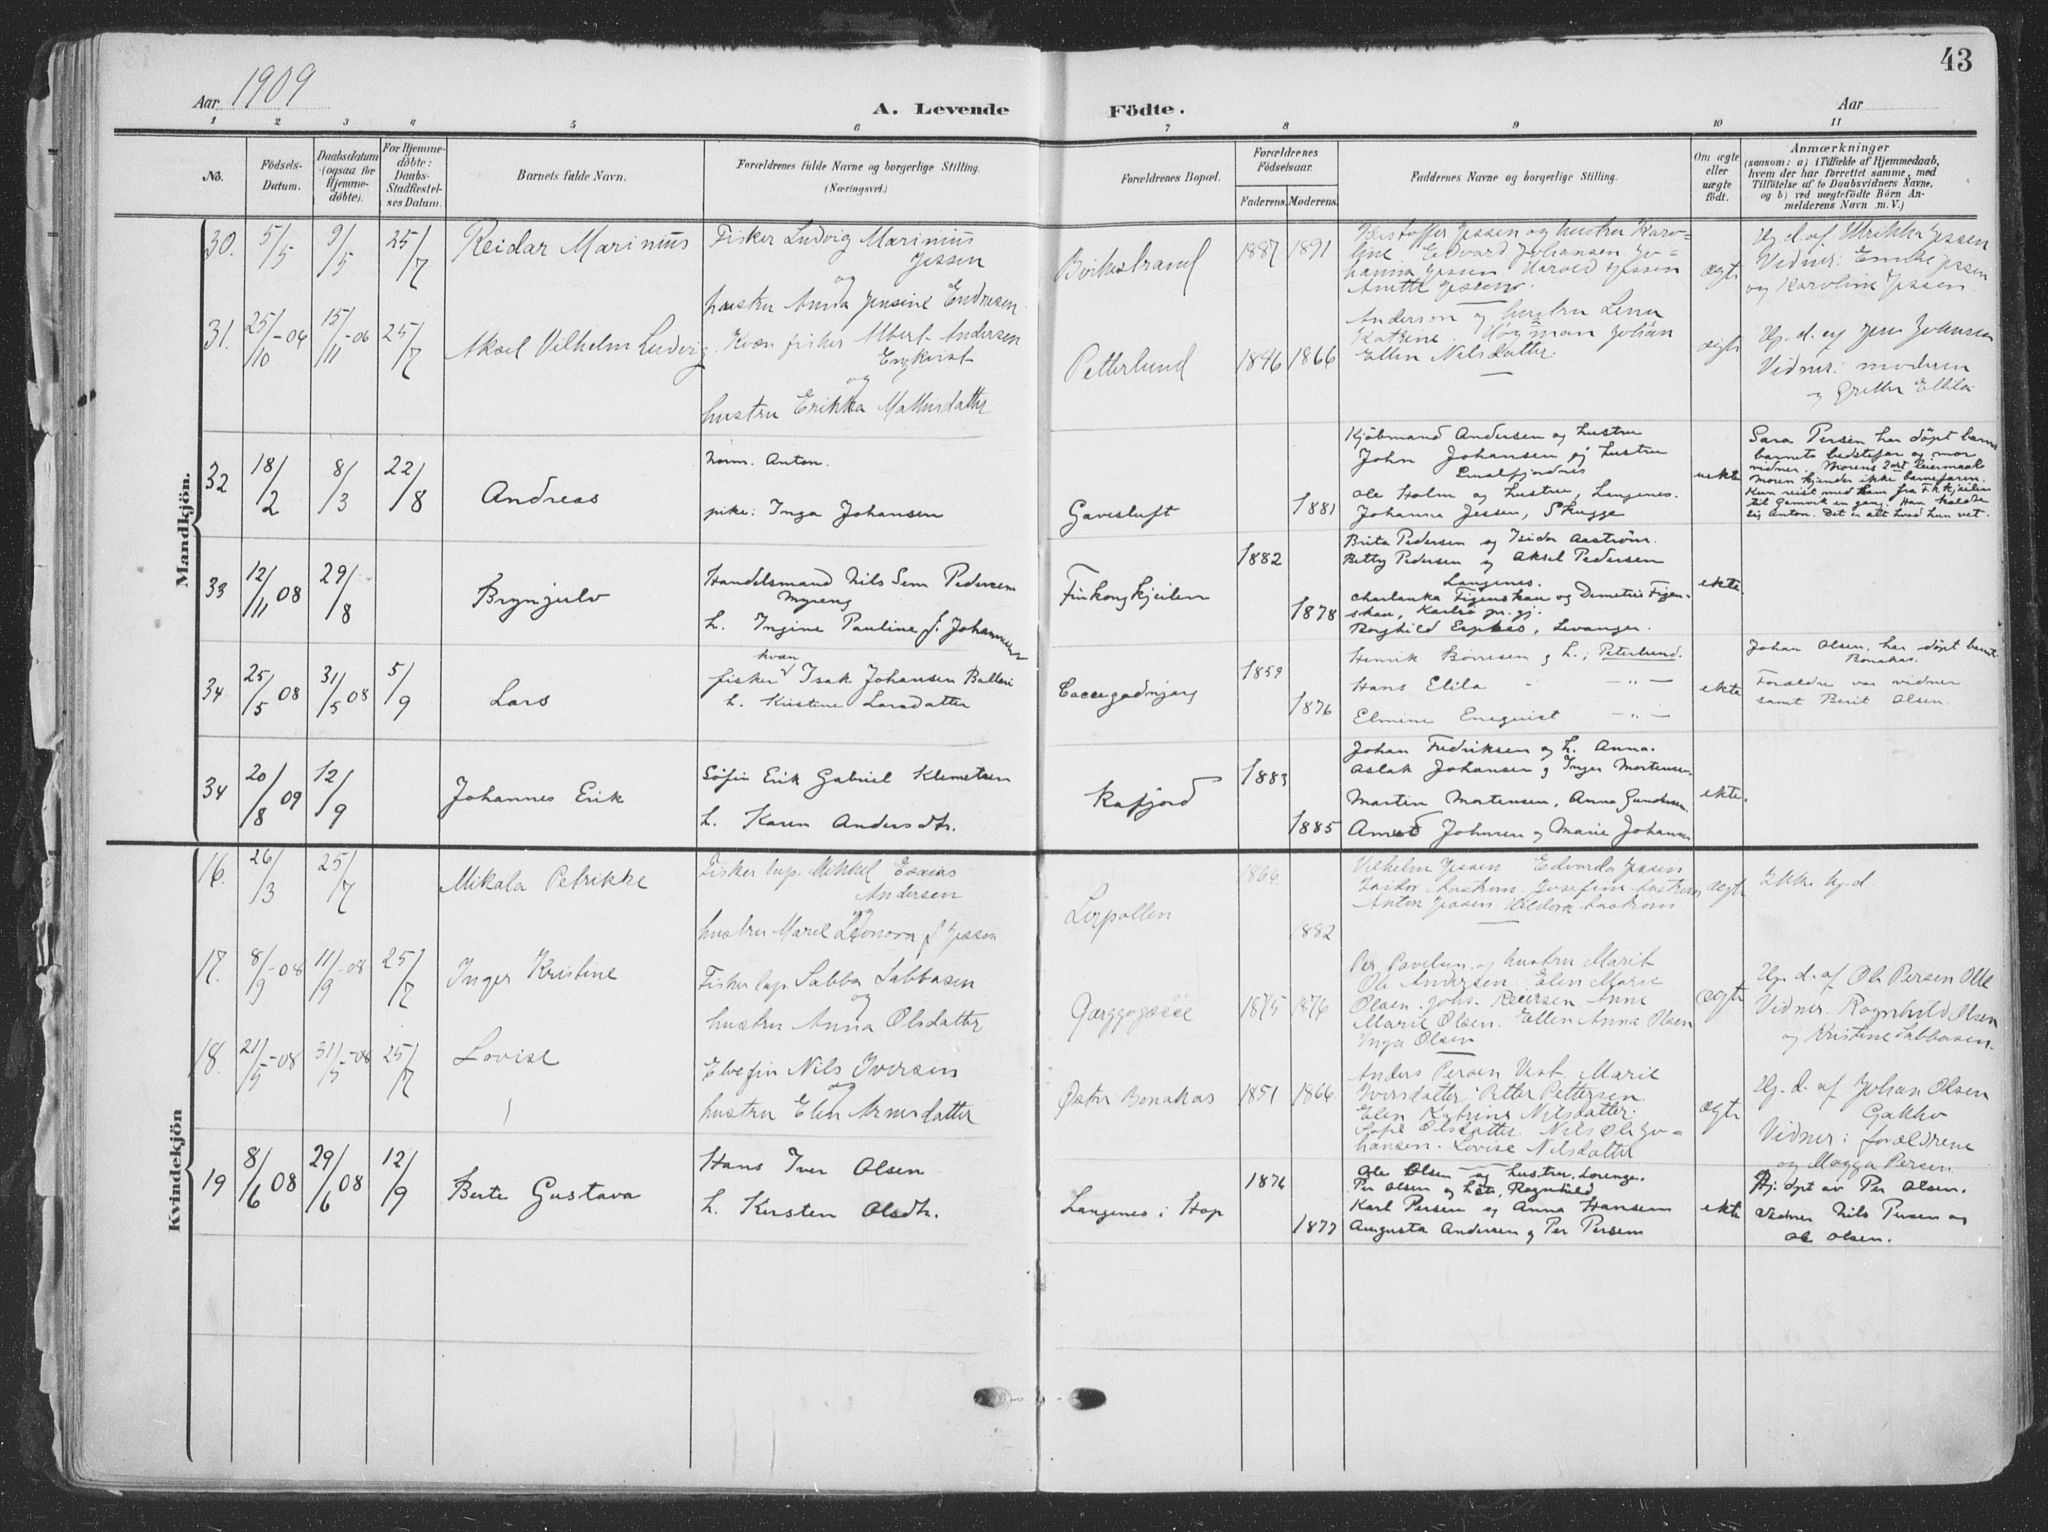 43
Aar 1909
A. Levende Födte.
Aar
1 2 3 4 5 6 7 8 9 10 11
No.
Födsels-
Datum.
Daabsdatum
(ogsaa for
Hjemme-
döbte).
For Hjemme-
döbte:
Daabs-
Stadfæstel-
ses Datum.
Barnets fulde Navn.
Forældrenes fulde Navne og borgerlige Stilling.
(Næringsvei.)
Forældrenes Bopæl.
Forældrenes
Födselsaar.
Faderens. Moderens.
Faddernes Navne og borgerlige Stilling.
Om ægte
eller
uægte
födt.
Anmærkninger
(saasom: a) i Tilfælde af Hjemmedaab,
hvem der har forrettet samme, med
Tilföielse af to Daabsvidners Navne,
og b) ved uægtefödte Börn An-
melderens Navn m. V.)
Mandkjön.
30. 5/5 9/5 25/7 Reidar Marinius
Fisker Ludvig Marinius
Jessen
og
hustru Anna Jensine Endresen
Birkestrand 1887 1891
Kristoffer Jessen og hustru Karo-
line. Edvard Johansen Jo-
hanna Jessen Harold Jessen
Anette Jessen
ægte
Hj. d. af Ulrikke Jessen
Vidner: Emilie Jessen
og Karoline Jessen.
31. 25/10-06 15/11-06 25/7 Aksel Vilhelm Ludvig
Kvæn fisker Albert Andersen
Enqvist
og
hustru Erikka Mathisdatter
Petterlund 1846 1866
Anderson og hustru Lena
Katrine. Høgman Johan
Ellen Nilsdatter.
ægte
Hj. d. af Jens Johansen
Vidner: moderen
og Grethe Ellila
32 18/2 8/3 22/8 Andreas
norm. Anton.
pike: Inga Johansen
Gavesluft 1881
Kjöbmand Andersen og hustru
John Johansen og hustru
Smalfjordnes
Ole Holm og hustru, Langenes.
Johanna Jessen, Skugge
uekte
Sara Persen har döpt barnet
barnets bedstefar og mor
vidner. Morens 2det leiermaal.
Moren kjender ikke barnefaren.
Kun reist med ham fra F.k.kjeilen
til Gamvik en gang. Han kaldte
sig Anton. Det er alt hvad hun vet.
33 12/11 08 29/8 Brynjulv
Handelsmand Nils Sem Pedersen
Myreng
h. Ingine Pauline f. Johannesen
Finkongkjeilen 1882 1878
Brita Pedersen og Isidor Aaström.
Betty Pedersen og Aksel Pedersen
Langenes.
Charlanka Figenskau og Demetris Figen-
skau, Karlsö pr.gj.
Borghild Espnes, Levanger.
ekte.
34 25/5 08 31/5 08 5/9 Lars
kvæn
fisker Isak Johansen Balleri
h. Kristine Larsdatter
1859 1876
Henrik Börresen og h.; Peterlund.
Hans Elila — " —
Elmine Eneqvist — " —
ekte
Johan Olsen, har döpt barnet
Bonakas.
Forældre var vidner
samt Berit Olsen.
34 20/8 09 12/9 Johannes Erik
Söfin Erik Gabriel Klemetsen
h. Karen Andersdtr.
Kafjord 1883 1885
Johan Fredriksen og h. Anna.
Aslak Johansen og Inger Mortensen
Martin Mortensen, Anna Gundersen.
Johnsen og Marie Johansen
ekte.
Kvindekjön
16. 26/3 25/7 Mikala Petrikke
Fisker lap. Mikkel Esaias
Andersen
og
hustru Marel Leonora f Jessen
Lerpollen 1866. 1882
Vilhelm Jessen Edvarda Jessen
Isidor Aastrøm. Josefine Aastrøm
Anton Jessen. Heldora Aastrøm
ægte
Ikke hj.d.
17. 8/9-08 11/9-08 25/7 Inger Kristine
Fisker lap Sabba Sabbasen
og
hustru Anna Olsdatter
Gærggogæsse 1875 1876
Per Pavelsen og hustru Marit
Ole Andersen. Elen Marie
Olsen. Johs. Reiersen Anne
Marie Olsen. Ellen Anna Olsen
Inga Olsen
ægte
Hj. d. af Ole Persen Olle
Vidner. Ragnhild Olsen
og Kristine Sabbasen.
18. 21/5-08 31/5-08 25/7 Lovise
Elvefin Nils Iversen
og
hustru Elen Arnesdatter
Øster Bonakas 1851 1866.
Anders Persen Vest. Marie
Iversdatter. Petter Pettersen
Elen Katrine Nilsdatter.
Sofie Olsdatter. Nils Ole Jo-
hansen. Lovise Nilsdatter
ægte
Hj. d. af Johan Olsen
Gakko
Vidner: forældrene
og Magga Persen.
19 8/6 08 29/6 08 12/9 Berte Gustava
Hans Iver Olsen
h. Kirsten Olsdtr.
Langenes i Hop 1876 1877
Ole Olsen og hustru, Lorenze.
Per Olsen og Ragnhild
Karl Persen og Anna Hansen
Augusta Andersen og Per Persen
ekte
Hj. döpt av Per Olsen.
Vidner Nils Persen og
Ole Olsen.